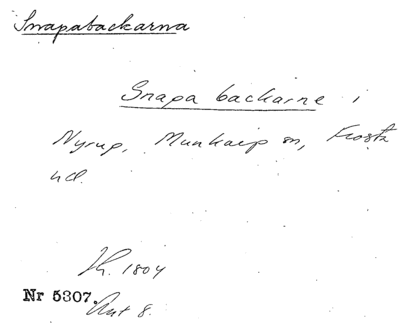 Snapabackarna
Snapa backarne i
Nyrup, Munkarp sn, Frosta
hd.
Jh. 1804
Nr 5307.
Akt 8.